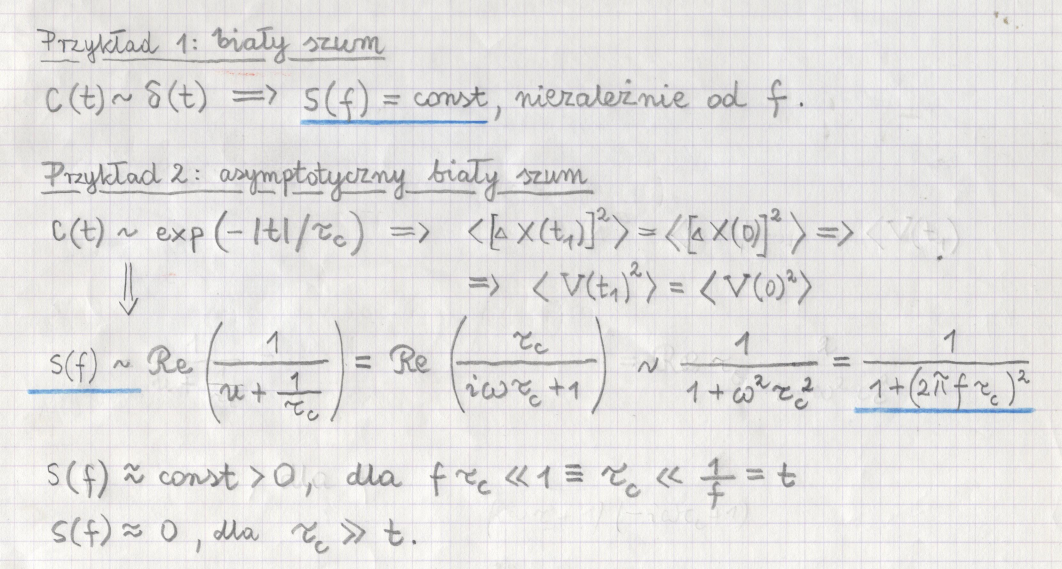 Przykład 1: biały szum
C(t) ~ δ(t) ⟹ S(f) = const, niezależnie od f.
Przykład 2: asymptotyczny biały szum
C(t) ~ exp(-|t|/τ_c) ⟹ ⟨[ΔX(t₁)]²⟩ = ⟨[ΔX(0)]²⟩ ⟹
⇓ ⟹ ⟨V(t₁)²⟩ = ⟨V(0)²⟩
S(f) ~ Re(1/(u + 1/τ_c)) = Re(τ_c/(iωτ_c + 1)) ~ 1/(1 + ω²τ_c²) = 1/(1 + (2πfτ_c)²)
S(f) ≈ const > 0, dla fτ_c ≪ 1 ≡ τ_c ≪ 1/f = t
S(f) ≈ 0, dla τ_c ≫ t.